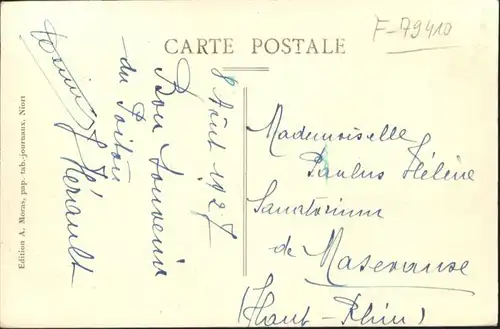 F-79410
CARTE POSTALE
8 Août 1927
Bon Souvenir
du Poitou
Hérault
Mademoiselle
Paulus Hélène
Sanatorium
de Masevaux
(Haut-Rhin)
Edition A. Moras, pap. tab.-journaux, Niort